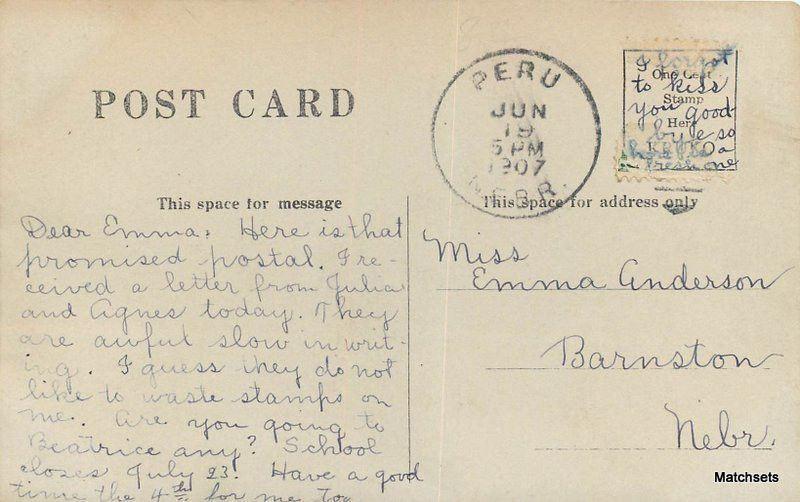 POST CARD
PERU
JUN
19
5 PM
1907
NEBR.
I forgot
to kiss
you good
bye so
here is a
fresh one
One Cent
Stamp
Here
This space for message
This space for address only
Dear Emma: Here is that
promised postal. I re-
ceived a letter from Julia
and Agnes today. They
are awful slow in writ-
ing. I guess they do not
like to waste stamps on
me. Are you going to
Beatrice any? School
closes July 23. Have a good
time the 4th for me too
Miss
Emma Anderson
Barnston
Nebr.
Matchsets